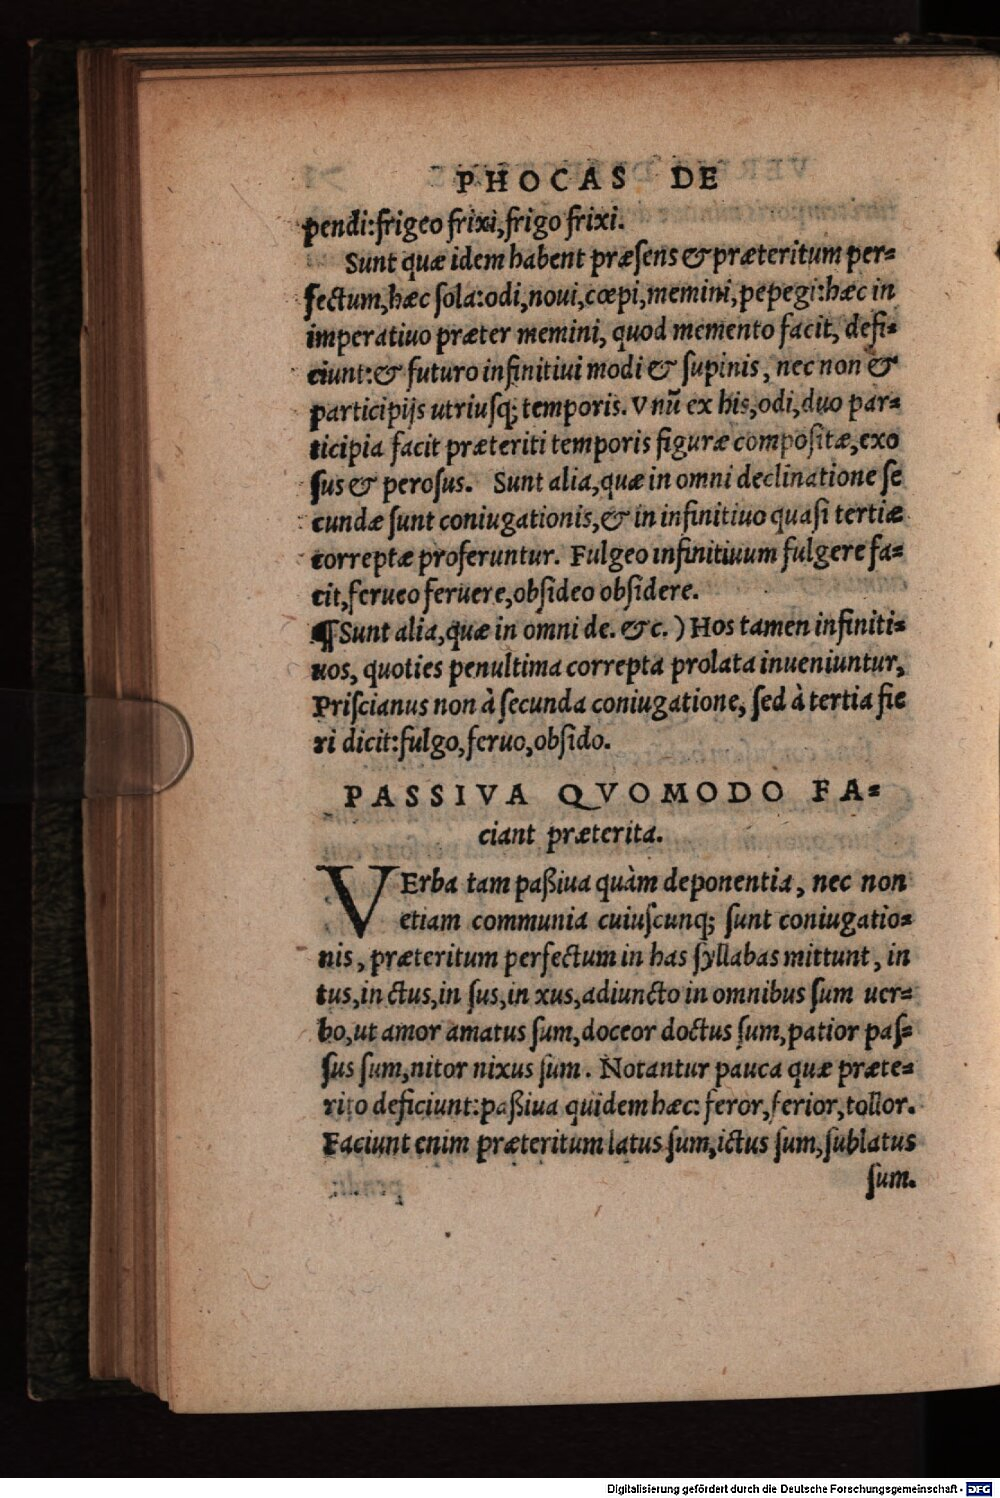 PHOCAS DE
pendi:frigeo frixi,frigo frixi.
Sunt quæ idem habent præſens & præteritum per-
fectum,hæc ſola:odi,noui,cœpi,memini,pepegi:hæc in
imperatiuo præter memini, quod memento facit, defi-
ciunt:& futuro infinitiui modi & ſupinis, nec non &
participijs utriuſq; temporis. Vnũ ex his,odi,duo par-
ticipia facit præteriti temporis figuræ compoſitæ,exo
ſus & peroſus. Sunt alia,quæ in omni declinatione ſe
cundæ ſunt coniugationis,& in infinitiuo quaſi tertiæ
correptæ proferuntur. Fulgeo infinitiuum fulgere fa-
cit,ferueo feruere,obſideo obſidere.
¶ Sunt alia,quæ in omni de. &c. ) Hos tamen infiniti-
uos, quoties penultima correpta prolata inueniuntur,
Priſcianus non à ſecunda coniugatione, ſed à tertia fie
ri dicit:fulgo,feruo,obſido.
PASSIVA QVOMODO FA-
ciant præterita.
VErba tam paßiua quàm deponentia, nec non
etiam communia cuiuſcunq; ſunt coniugatio-
nis, præteritum perfectum in has ſyllabas mittunt, in
tus,in ctus,in ſus,in xus,adiuncto in omnibus ſum uer-
bo,ut amor amatus ſum,doceor doctus ſum,patior paſ-
ſus ſum,nitor nixus ſum. Notantur pauca quæ præte-
rito deficiunt:paßiua quidem hæc: feror,ferior,tollor.
Faciunt enim præteritum latus ſum,ictus ſum,ſublatus
ſum.
Digitalisierung gefördert durch die Deutsche Forschungsgemeinschaft - DFG